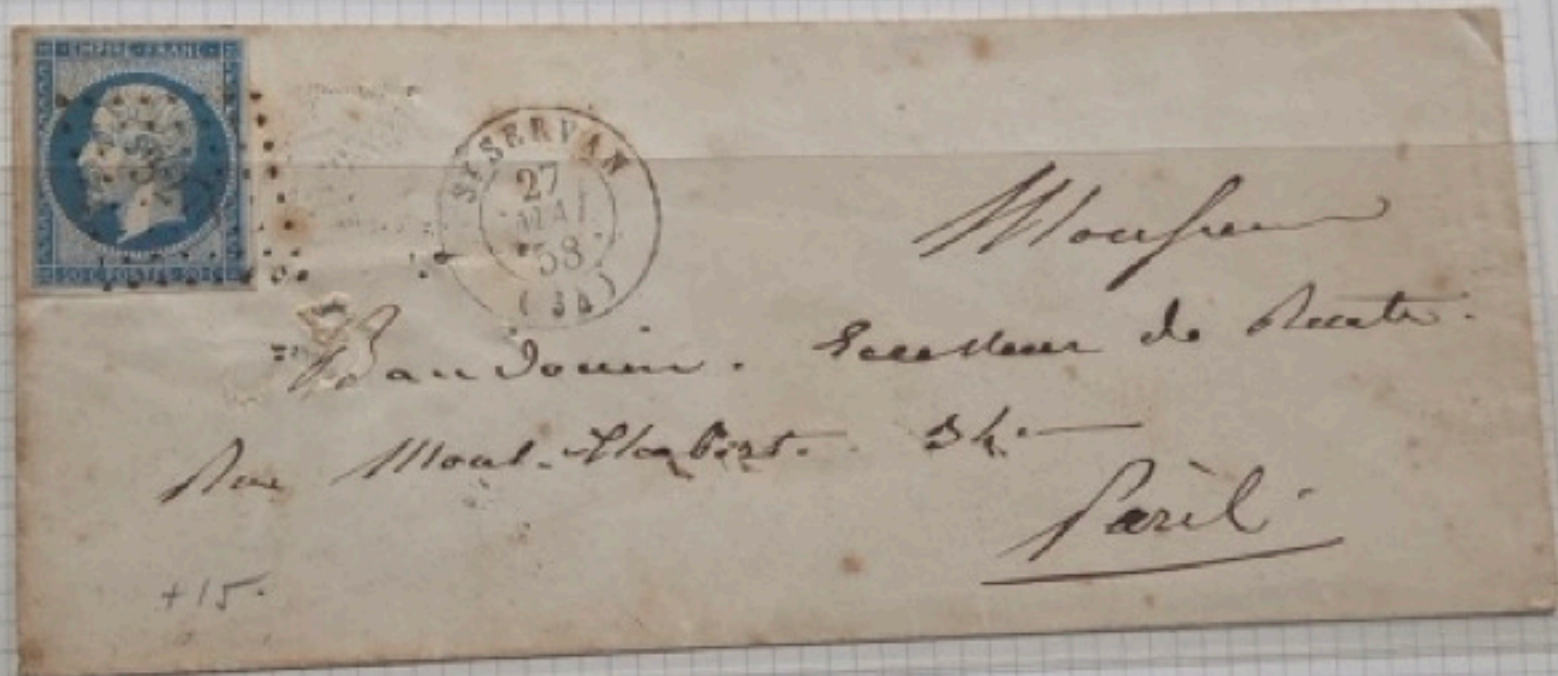 EMPIRE FRANC
20 C POSTES 20 C
ST SERVAN
27
MAI
58
(34)
Monsieur
Baudouin. Receveur de Rente.
Rue Mont-Thabor. 34.
Paris
+15.